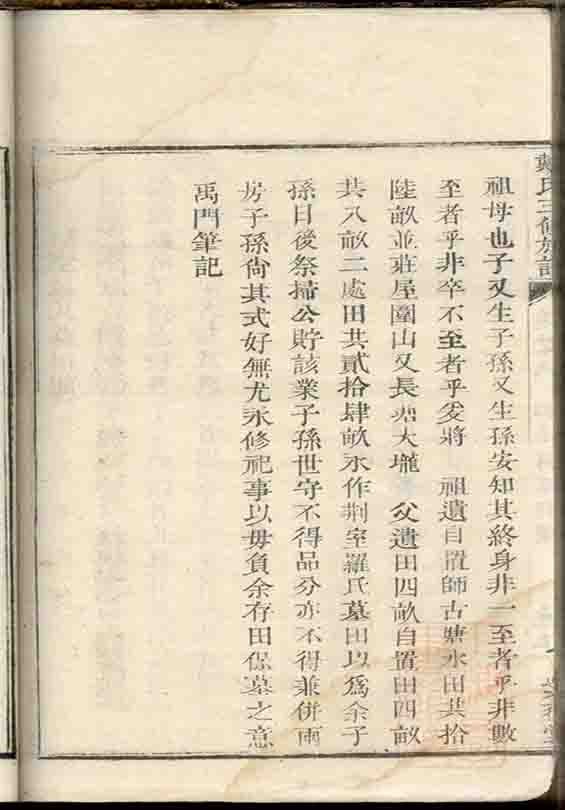 戴氏三修族譜
祖母也子又生子孫又生孫安知其終身非一至者乎非數
至者乎非卒不至者乎爰將 祖遺自置師古塘水田共拾
陸畝並莊屋圍山又長塘大壠 父遺田四畝自置田四畝
共八畝二處田共貳拾肆畝永作荆室羅氏墓田以爲余子
孫日後祭掃公貯該業子孫世守不得品分亦不得兼併兩
房子孫尙其式好無尤永修祀事以毋負余存田保墓之意
禹門筆記